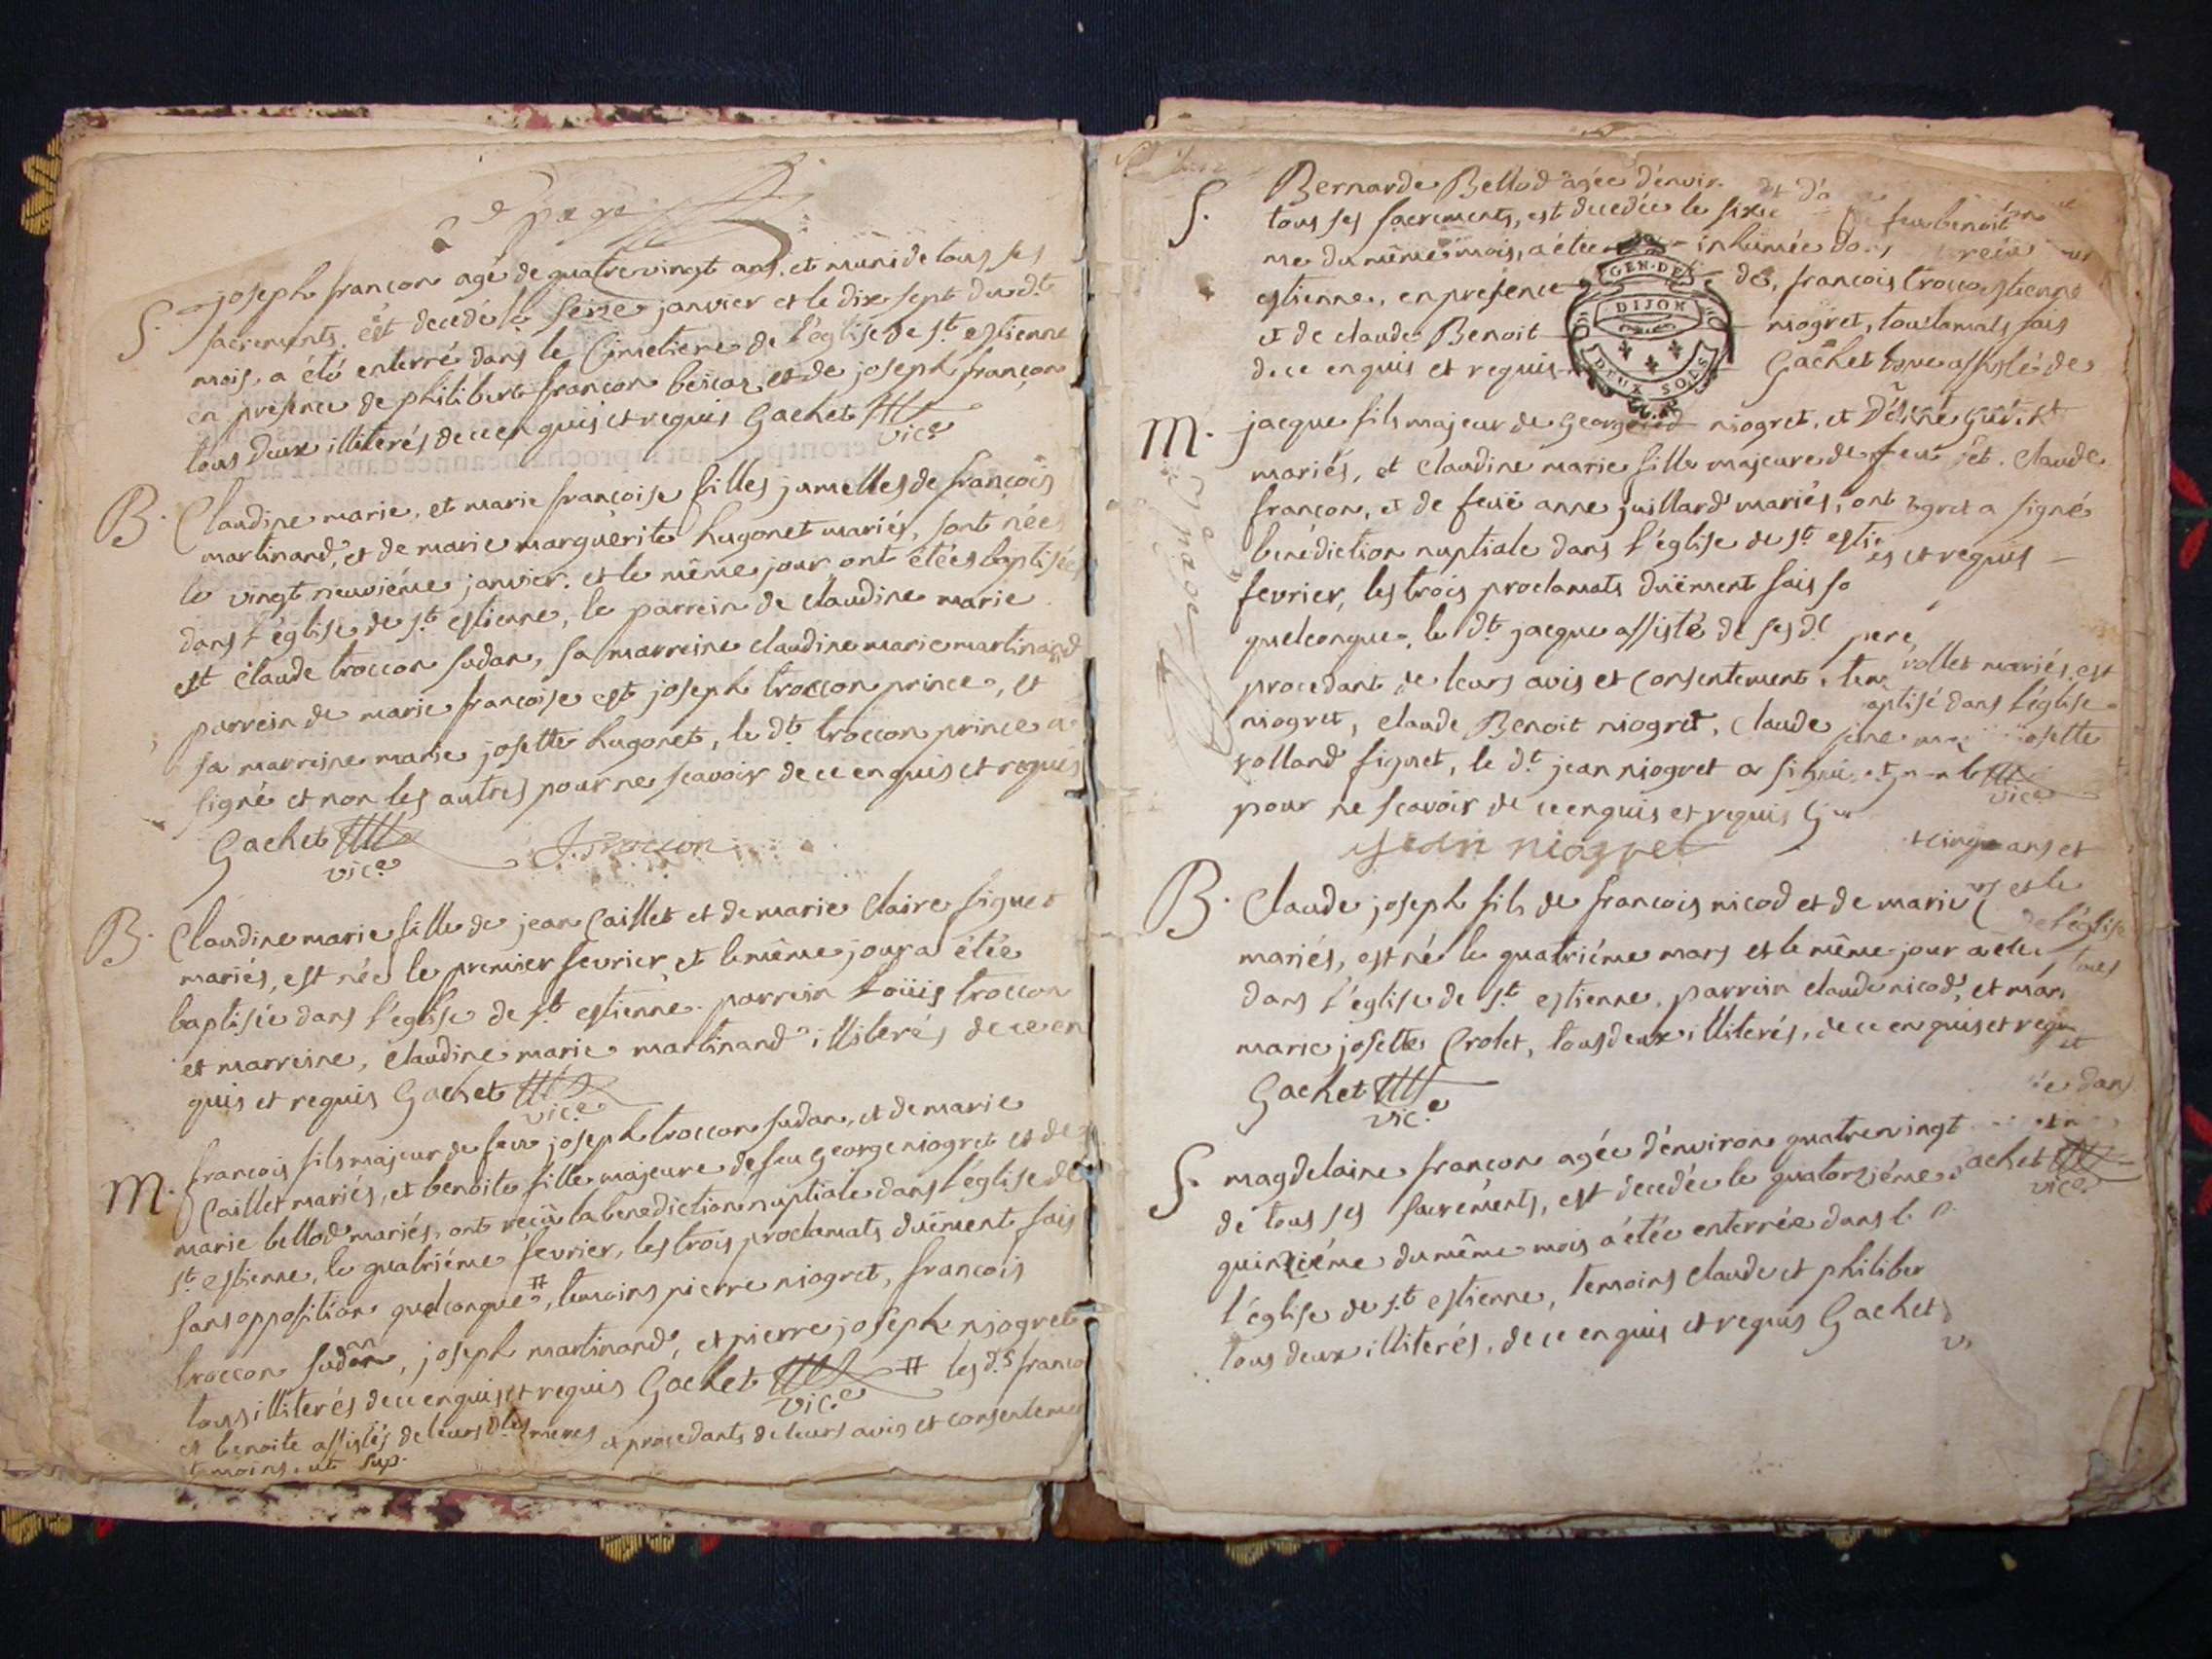 2e page
S. joseph françon agé de quatrevingt ans, et muni de tous ses
sacrements, est decedé le seize janvier et le dix sept du dt
mois, a été enterré dans le Cimetiere de l'église de st estienne
en presence de philibert françon beicar, et de joseph françon
tous deux illiterés de ce enquis et requis Gachet
vice
B. Claudine marie, et marie françoise filles jumelles de françois
martinand, et de marie marguerite hugonet mariés, sont nées
le vingt neuviéme janvier, et le même jour ont étées baptisées
dans l'église de st estienne, le parrein de claudine marie
est claude troccon sudan, sa marreine claudine marie martinand
parrein de marie françoise est joseph troccon prince, et
sa marreine marie josette hugonet, le dt troccon prince a
signé et non les autres pour ne scavoir de ce enquis et requis
Gachet J. troccon
vice
B. Claudine marie fille de jean Caillet et de marie Claire figuet
mariés, est née le premier fevrier, et le même jour a étée
baptisée dans l'église de st estienne. parrein Loüis troccon
et marreine, claudine marie martinand illiterés de ce en
quis et requis Gachet
vice
M. françois fils majeur de feu joseph troccon sudan, et de marie
Caillet mariés, et benoite fille majeure de feu George niogret et de
marie bellod mariés, ont reçû la benediction nuptiale dans l'église de
st estienne, le quatriéme fevrier, les trois proclamats duëment fais
sans opposition quelconque #, temoins pierre niogret, françois
troccon sudan, joseph martinand, et pierre joseph niogret
tous illiterés de ce enquis et requis Gachet # les ds franco
vice
et benoite assistés de leurs dtes meres et procedants de leurs avis et consenteme
temoins, ut sup.
S. Bernarde Bellod agée d'envir
tous ses sacrements, est decedée le sixie feu benoit
me du même mois, a étée inhumée dans reçû
estienne, en presence de, françois trocco stienne
et de claude Benoit niogret, tous lamats fais
de ce enquis et requis Gachet assisté de
GEN. DE
DIJON
DEUX SOLS
M. jacque fils majeur de George niogret, et
mariés, et Claudine marie fille majeure de feu claude
françon, et de feüe anne juillard mariés, ont ogret a signé
benédiction nuptiale dans l'église de st estie es et requis
fevrier, les trois proclamats duëment fais so
quelconque, le dt jacque assisté de ses d pere,
procedant de leurs avis et consentement, tem rollet mariés, est
niogret, claude Benoit niogret, Claude aptisé dans l'église
rolland figuet, le dt jean niogret a signé osette
pour ne scavoir de ce enquis et requis G vice
jean niogret
t cinq ans et
B. Claude joseph fils de françois nicod et de marie et le
mariés, est né le quatriéme mars et le même jour a éte de l'église
dans l'église de st estienne, parrein claude nicod, et mar tous
marie josette Crolet, tous deux illiterés, de ce enquis et requ
Gachet
vice
ée dans
S. magdelaine françon agée d'environ quatrevingt
de tous ses sacréments, est decedée le quatorziéme Gachet
vice
quinziéme du même mois a étée enterrée dans le
l'église de st estienne, temoins claude et philiber
tous deux illiterés, de ce enquis et requis Gachet